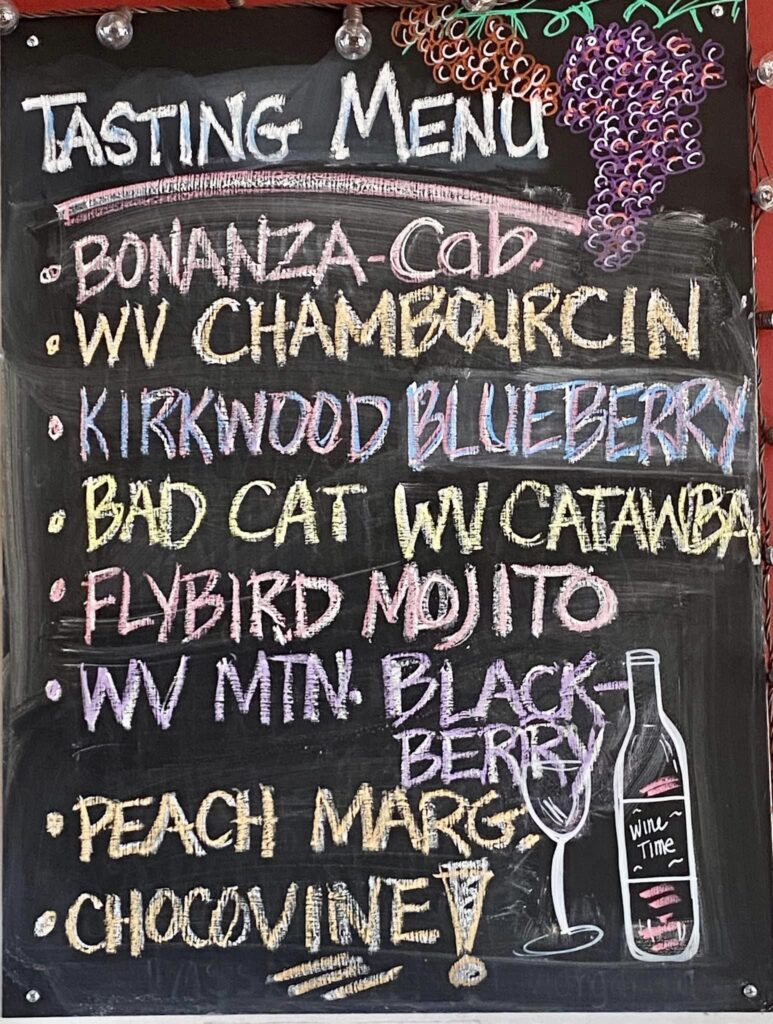 TASTING MENU
BONANZA-Cab.
WV CHAMBOURCIN
KIRKWOOD BLUEBERRY
BAD CAT WV CATAWBA
FLYBIRD MOJITO
WV MTN. BLACK-
BERRY
PEACH MARG.
CHOCOVINE!
~Wine~
~Time~